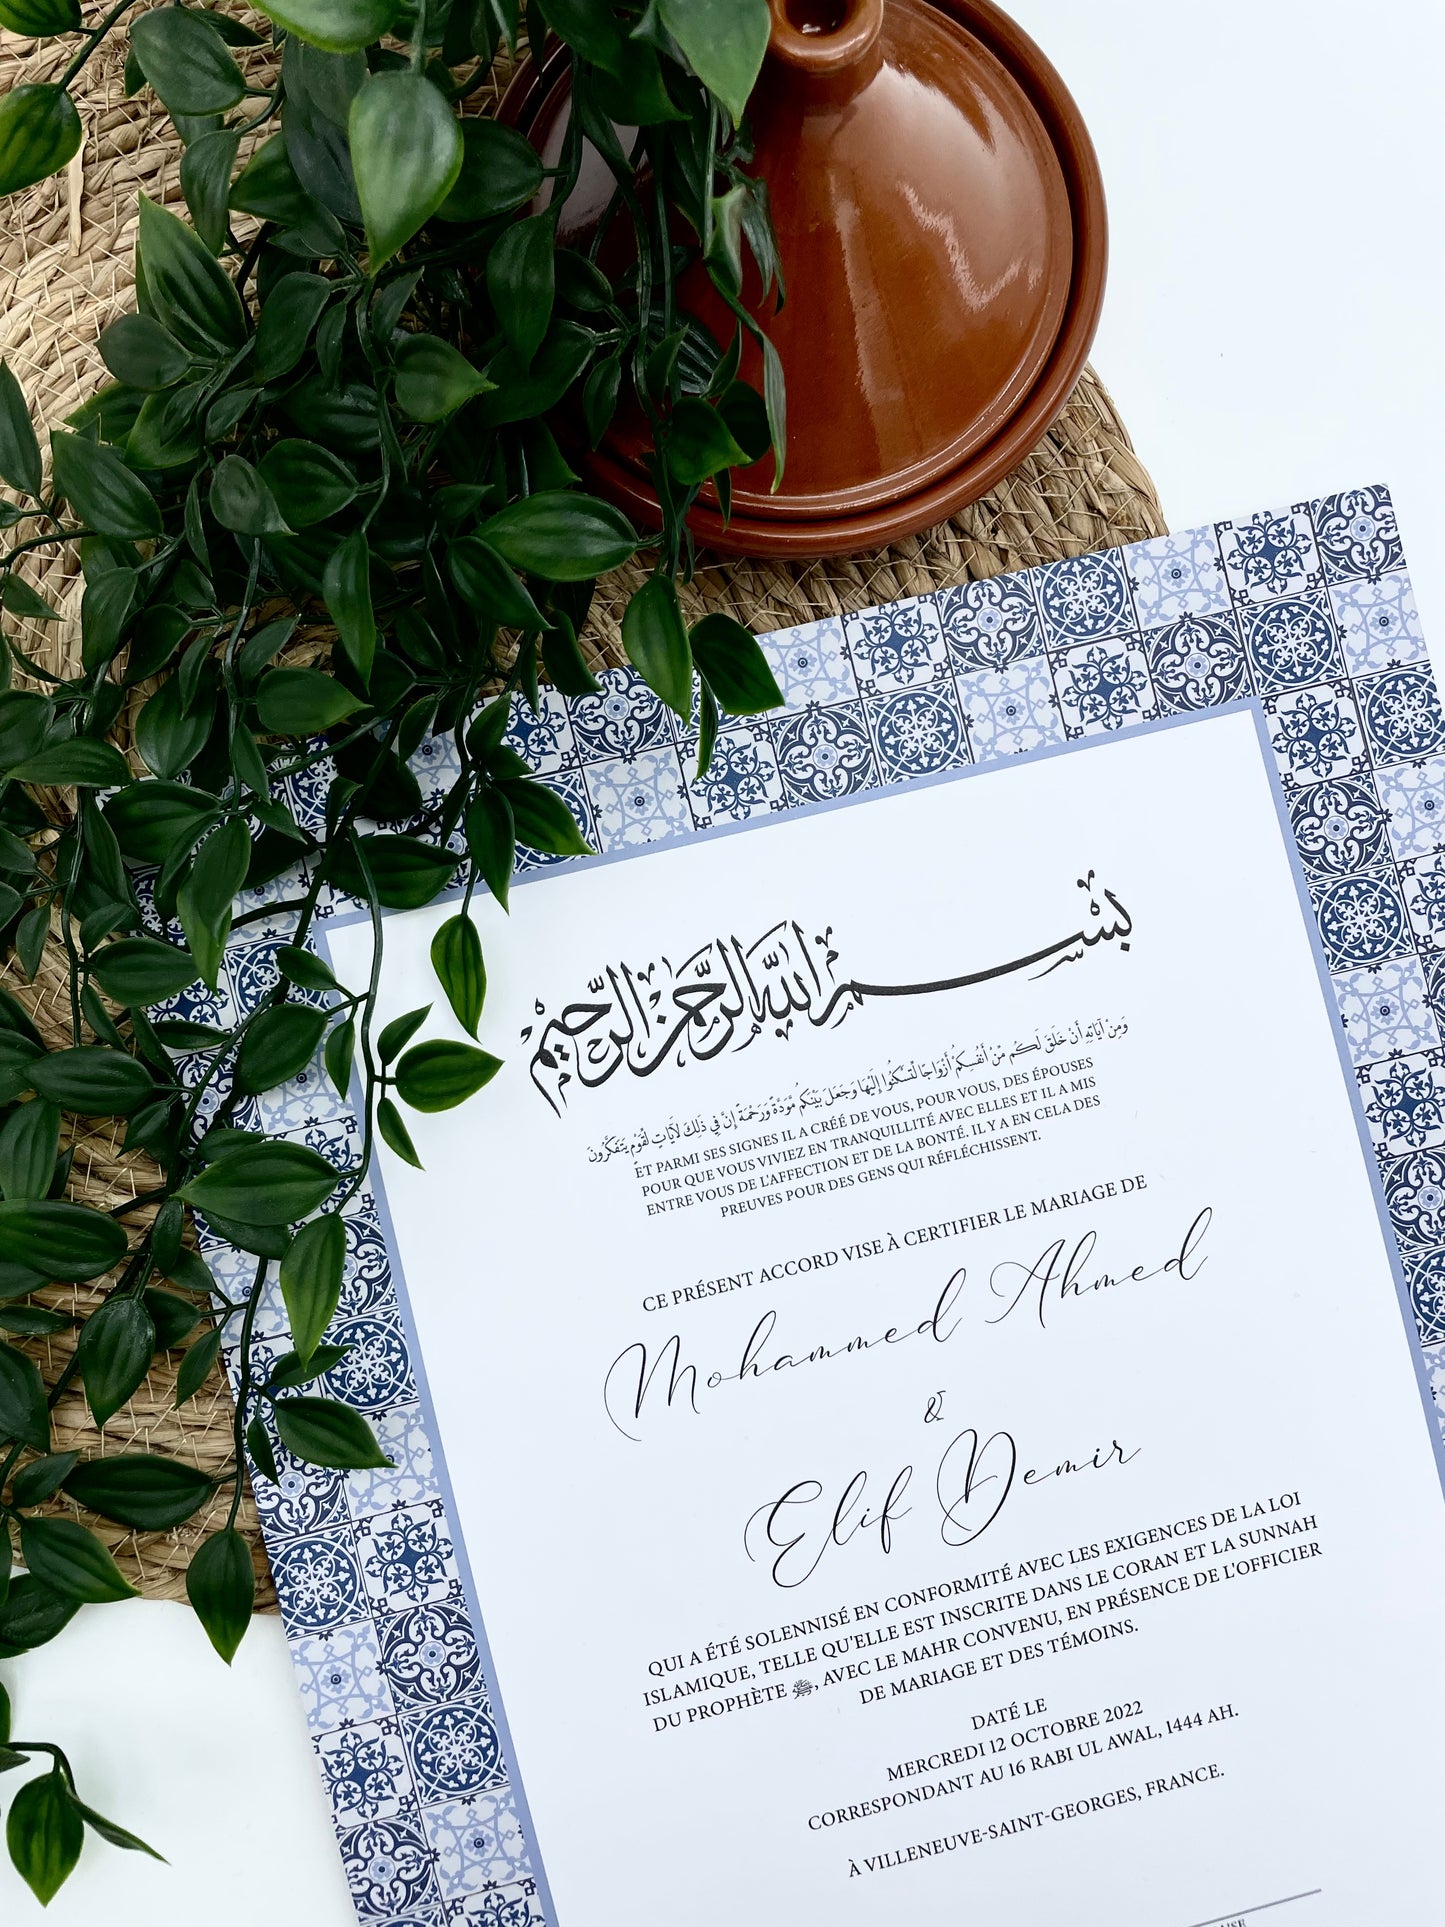 بِسْمِ اللهِ الرَّحْمٰنِ الرَّحِيْمِ
وَمِنْ آيَاتِهِ أَنْ خَلَقَ لَكُم مِّنْ أَنفُسِكُمْ أَزْوَاجًا لِّتَسْكُنُوا إِلَيْهَا وَجَعَلَ بَيْنَكُم مَّوَدَّةً وَرَحْمَةً إِنَّ فِي ذَلِكَ لَآيَاتٍ لِّقَوْمٍ يَتَفَكَّرُونَ
ET PARMI SES SIGNES IL A CRÉÉ DE VOUS, POUR VOUS, DES ÉPOUSES
POUR QUE VOUS VIVIEZ EN TRANQUILLITÉ AVEC ELLES ET IL A MIS
ENTRE VOUS DE L'AFFECTION ET DE LA BONTÉ. IL Y A EN CELA DES
PREUVES POUR DES GENS QUI RÉFLÉCHISSENT.
CE PRÉSENT ACCORD VISE À CERTIFIER LE MARIAGE DE
Mohammed Ahmed
&
Elif Demir
QUI A ÉTÉ SOLENNISÉ EN CONFORMITÉ AVEC LES EXIGENCES DE LA LOI
ISLAMIQUE, TELLE QU'ELLE EST INSCRITE DANS LE CORAN ET LA SUNNAH
DU PROPHÈTE ﷺ, AVEC LE MAHR CONVENU, EN PRÉSENCE DE L'OFFICIER
DE MARIAGE ET DES TÉMOINS.
DATÉ LE
MERCREDI 12 OCTOBRE 2022
CORRESPONDANT AU 16 RABI UL AWAL, 1444 AH.
À VILLENEUVE-SAINT-GEORGES, FRANCE.